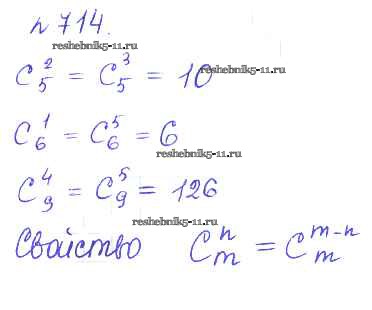 n 714.
reshebnik5-11.ru
C₅² = C₅³ = 10 reshebnik5-11.ru
C₆¹ = C₆⁵ = 6
reshebnik5-11.ru
C₉⁴ = C₉⁵ = 126
reshebnik5-11.ru
Свойство Cₘⁿ = Cₘᵐ⁻ⁿ